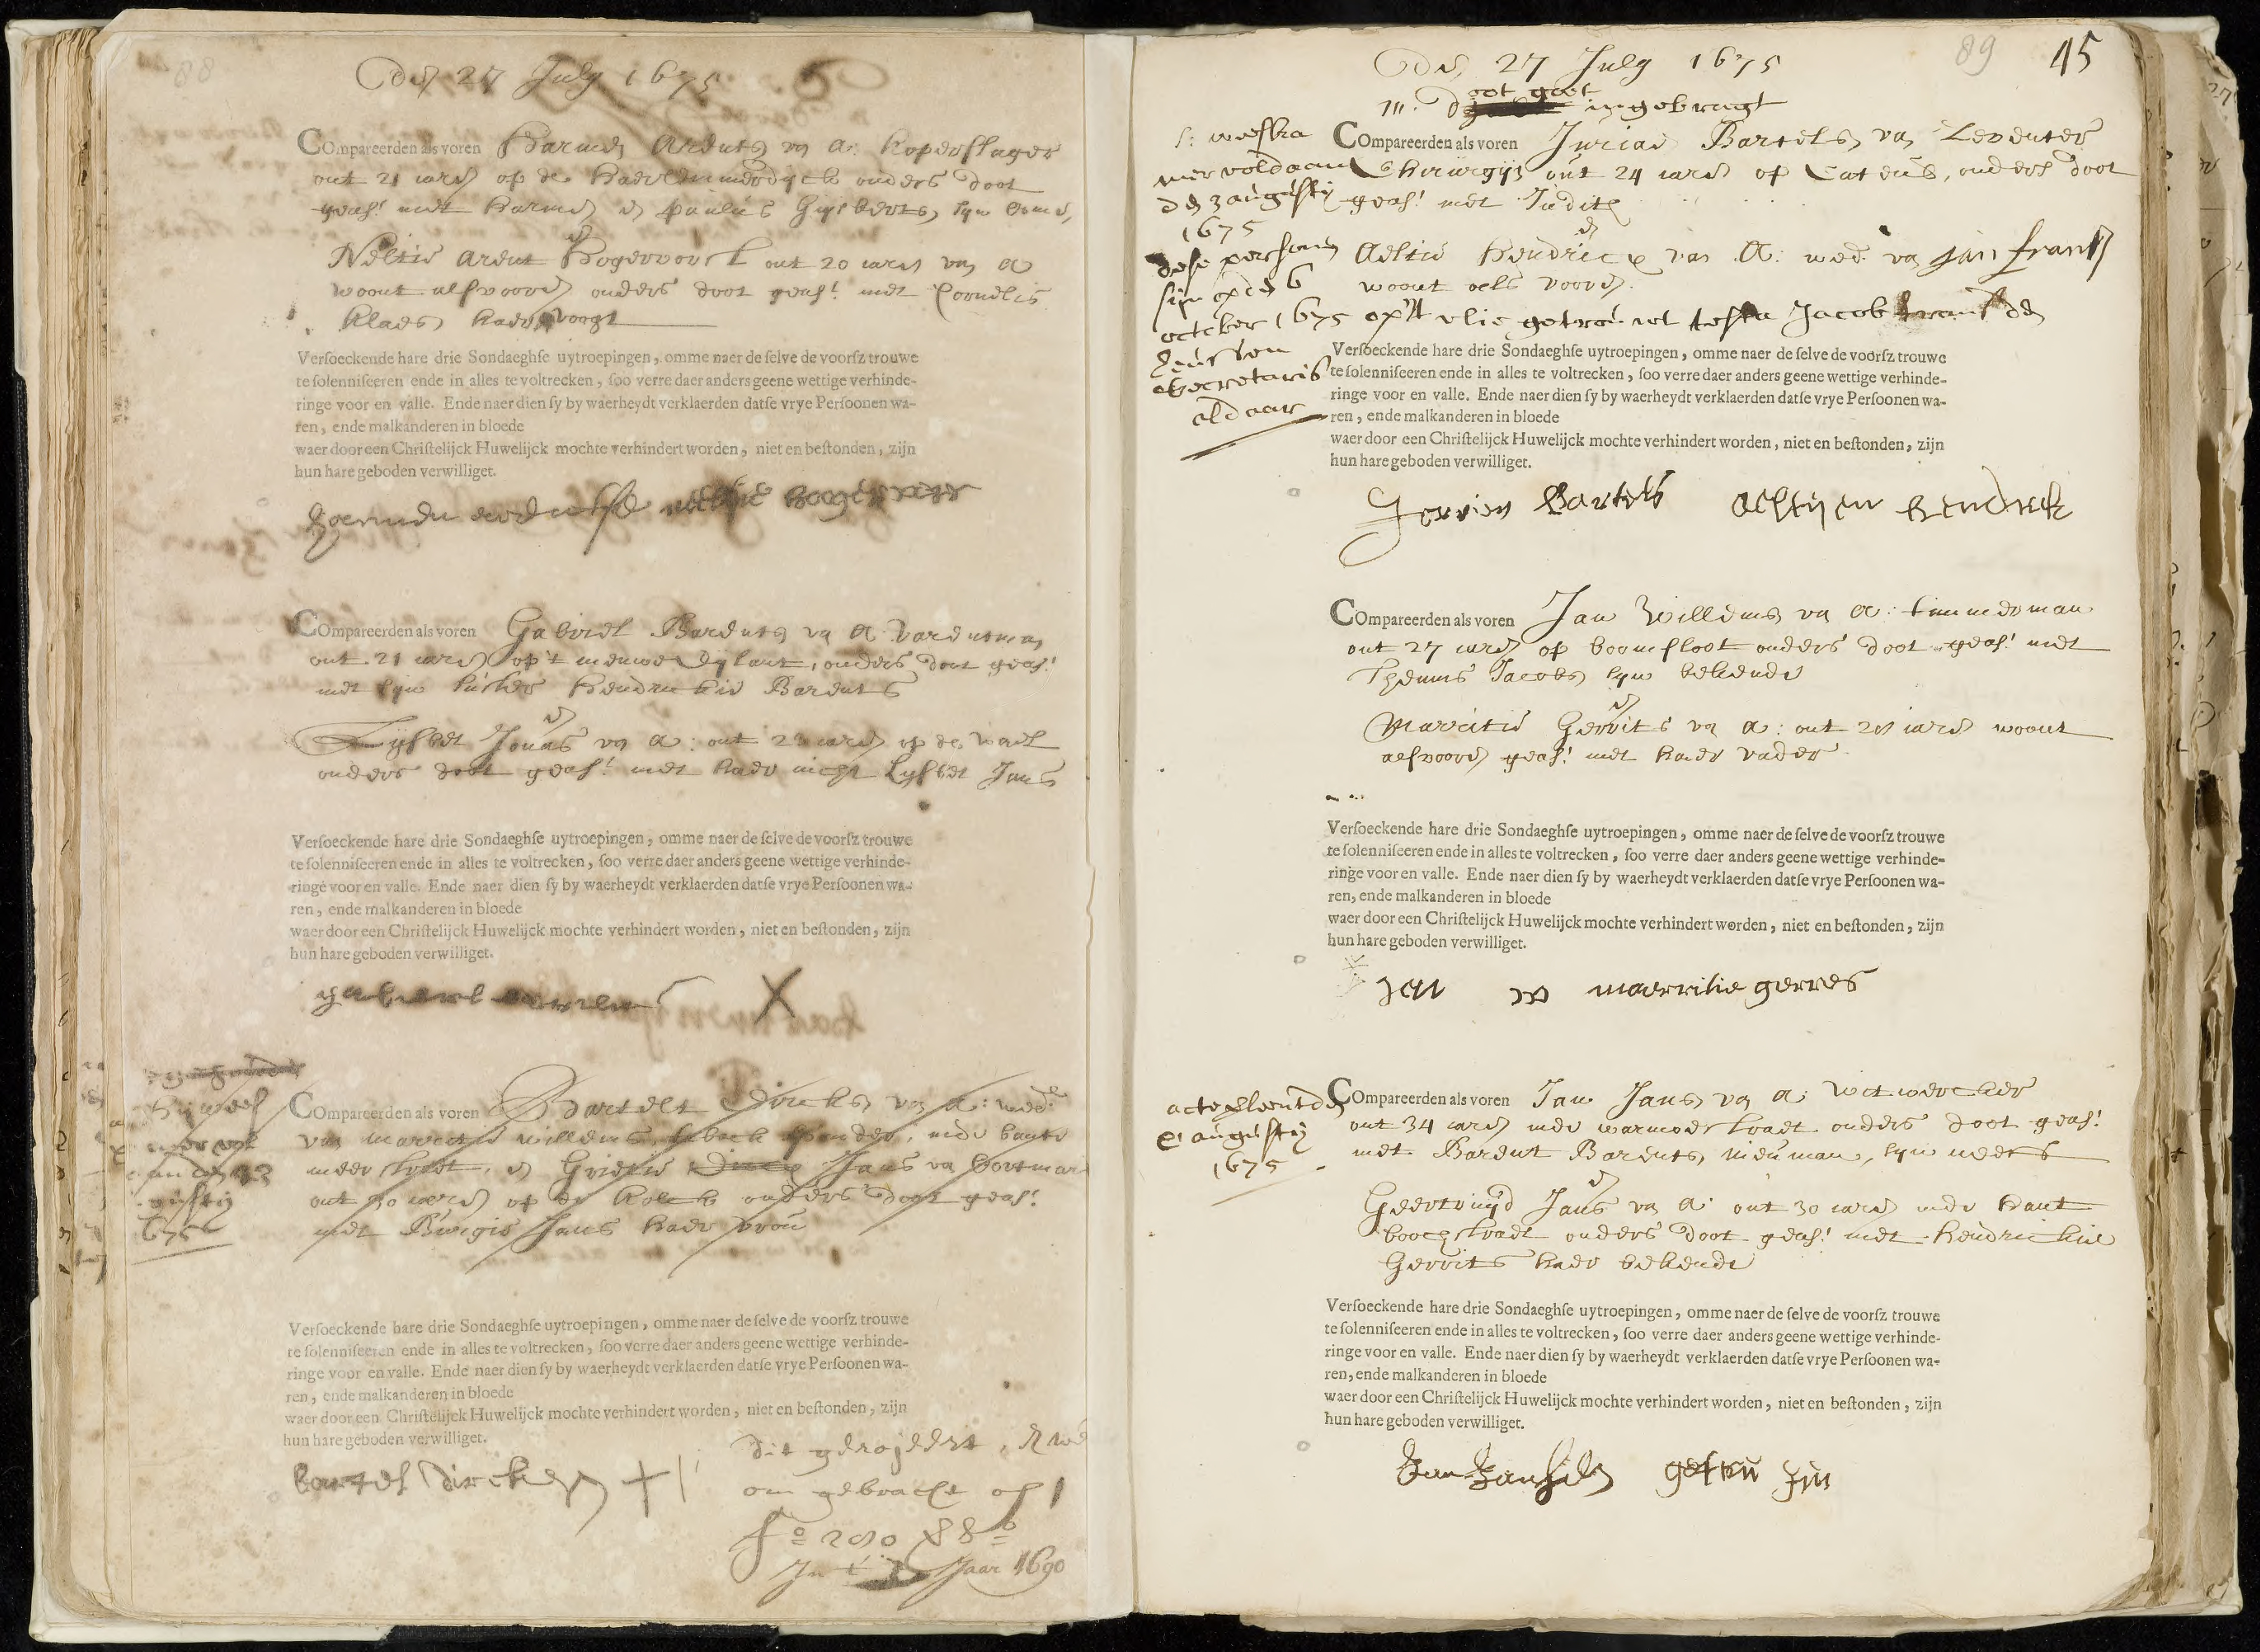 88
Den 27 July 1675
COmpareerden als voren Harmen Arents van A: koperslager
out 21 jaren op de Haerlemmerdijck ouders doot
geas! met Harmen en Paulus Gysberts, syn oome,
en
Neeltie Arent Hogervorst out 20 jaren van A
woont alsvooren ouders doot geas! met Cornelis
Klaes, haer voogt
Versoeckende hare drie Sondaeghse uytroepingen, omme naer de selve de voorsz trouwe
te solenniseeren ende in alles te voltrecken, soo verre daer anders geene wettige verhinde-
ringe voor en valle. Ende naer dien sy by waerheydt verklaerden datse vrye Persoonen wa-
ren, ende malkanderen in bloede
waer door een Christelijck Huwelijck mochte verhindert worden, niet en bestonden, zijn
hun hare geboden verwilliget.
COmpareerden als voren Gabriel Barents van A varentman
out 21 jaren op't nieuwe Eylant, ouders doot geas!
met syn suster Hendrickie Barents
en
Lysbet Jonas van A: out 23 jaren op de Wael
ouders doot geas! met haer nicht Lysbet Jans
Versoeckende hare drie Sondaeghse uytroepingen, omme naer de selve de voorsz trouwe
te solenniseeren ende in alles te voltrecken, soo verre daer anders geene wettige verhinde-
ringe voor en valle. Ende naer dien sy by waerheydt verklaerden datse vrye Persoonen wa-
ren, ende malkanderen in bloede
waer door een Christelijck Huwelijck mochte verhindert worden, niet en bestonden, zijn
hun hare geboden verwilliget.
X
COmpareerden als voren Bartelt Dircks van A: wedr
van Marritie Willems, inde bante
meer straet, en Grietie Jans van
out 30 jaren op de Kolck ouders doot geas!
met Burgie Jans haer
Versoeckende hare drie Sondaeghse uytroepingen, omme naer de selve de voorsz trouwe
te solenniseeren ende in alles te voltrecken, soo verre daer anders geene wettige verhinde-
ringe voor en valle. Ende naer dien sy by waerheydt verklaerden datse vrye Persoonen wa-
ren, ende malkanderen in bloede
waer door een Christelijck Huwelijck mochte verhindert worden, niet en bestonden, zijn
hun hare geboden verwilliget.
bartel dircksen +
dit gerojeert,
om gebracht op
Jaar 1690
89 45
Den 27 July 1675
doot ingebragt
COmpareerden als voren Juriaen Bartels, van Deventer
Chirurgijn out 24 jaren op Cateus, ouders doot
geas! met Judith
en
Aeltie Hendricx van A: wed van Jan Frans
woont als vooren
den 3 augusty
1675
dese persoonen
sijn op den 6
october 1675 op't vlie getrout testa Jacob
secretaris
aldaar
Versoeckende hare drie Sondaeghse uytroepingen, omme naer de selve de voorsz trouwe
te solenniseeren ende in alles te voltrecken, soo verre daer anders geene wettige verhinde-
ringe voor en valle. Ende naer dien sy by waerheydt verklaerden datse vrye Persoonen wa-
ren, ende malkanderen in bloede
waer door een Christelijck Huwelijck mochte verhindert worden, niet en bestonden, zijn
hun hare geboden verwilliget.
Jorrien Bartels Aeltijen Hendricks
COmpareerden als voren Jan Willems van A: timmerman
out 27 jaren op boomsloot ouders doot geas! met
Theunis Jacobs, syn bekende
en
Marritie Gerrits van A: out 28 jaren woont
alsvooren geas! met haer vader
Versoeckende hare drie Sondaeghse uytroepingen, omme naer de selve de voorsz trouwe
te solenniseeren ende in alles te voltrecken, soo verre daer anders geene wettige verhinde-
ringe voor en valle. Ende naer dien sy by waerheydt verklaerden datse vrye Persoonen wa-
ren, ende malkanderen in bloede
waer door een Christelijck Huwelijck mochte verhindert worden, niet en bestonden, zijn
hun hare geboden verwilliget.
Jan w marritie gerres
acte verleent den
augusty
1675
COmpareerden als voren Jan Jans, van A: witwercker
out 34 jaren inde warmoesstraet ouders doot geas!
met Barent Barents, Nieuman, syn neef
en
Geertruyd Jans van A: out 30 jaren inde Hant
boochstraet ouders doot geas! met Hendrickie
Gerrits haer bekende
Versoeckende hare drie Sondaeghse uytroepingen, omme naer de selve de voorsz trouwe
te solenniseeren ende in alles te voltrecken, soo verre daer anders geene wettige verhinde-
ringe voor en valle. Ende naer dien sy by waerheydt verklaerden datse vrye Persoonen wa-
ren, ende malkanderen in bloede
waer door een Christelijck Huwelijck mochte verhindert worden, niet en bestonden, zijn
hun hare geboden verwilliget.
Jan Jansen